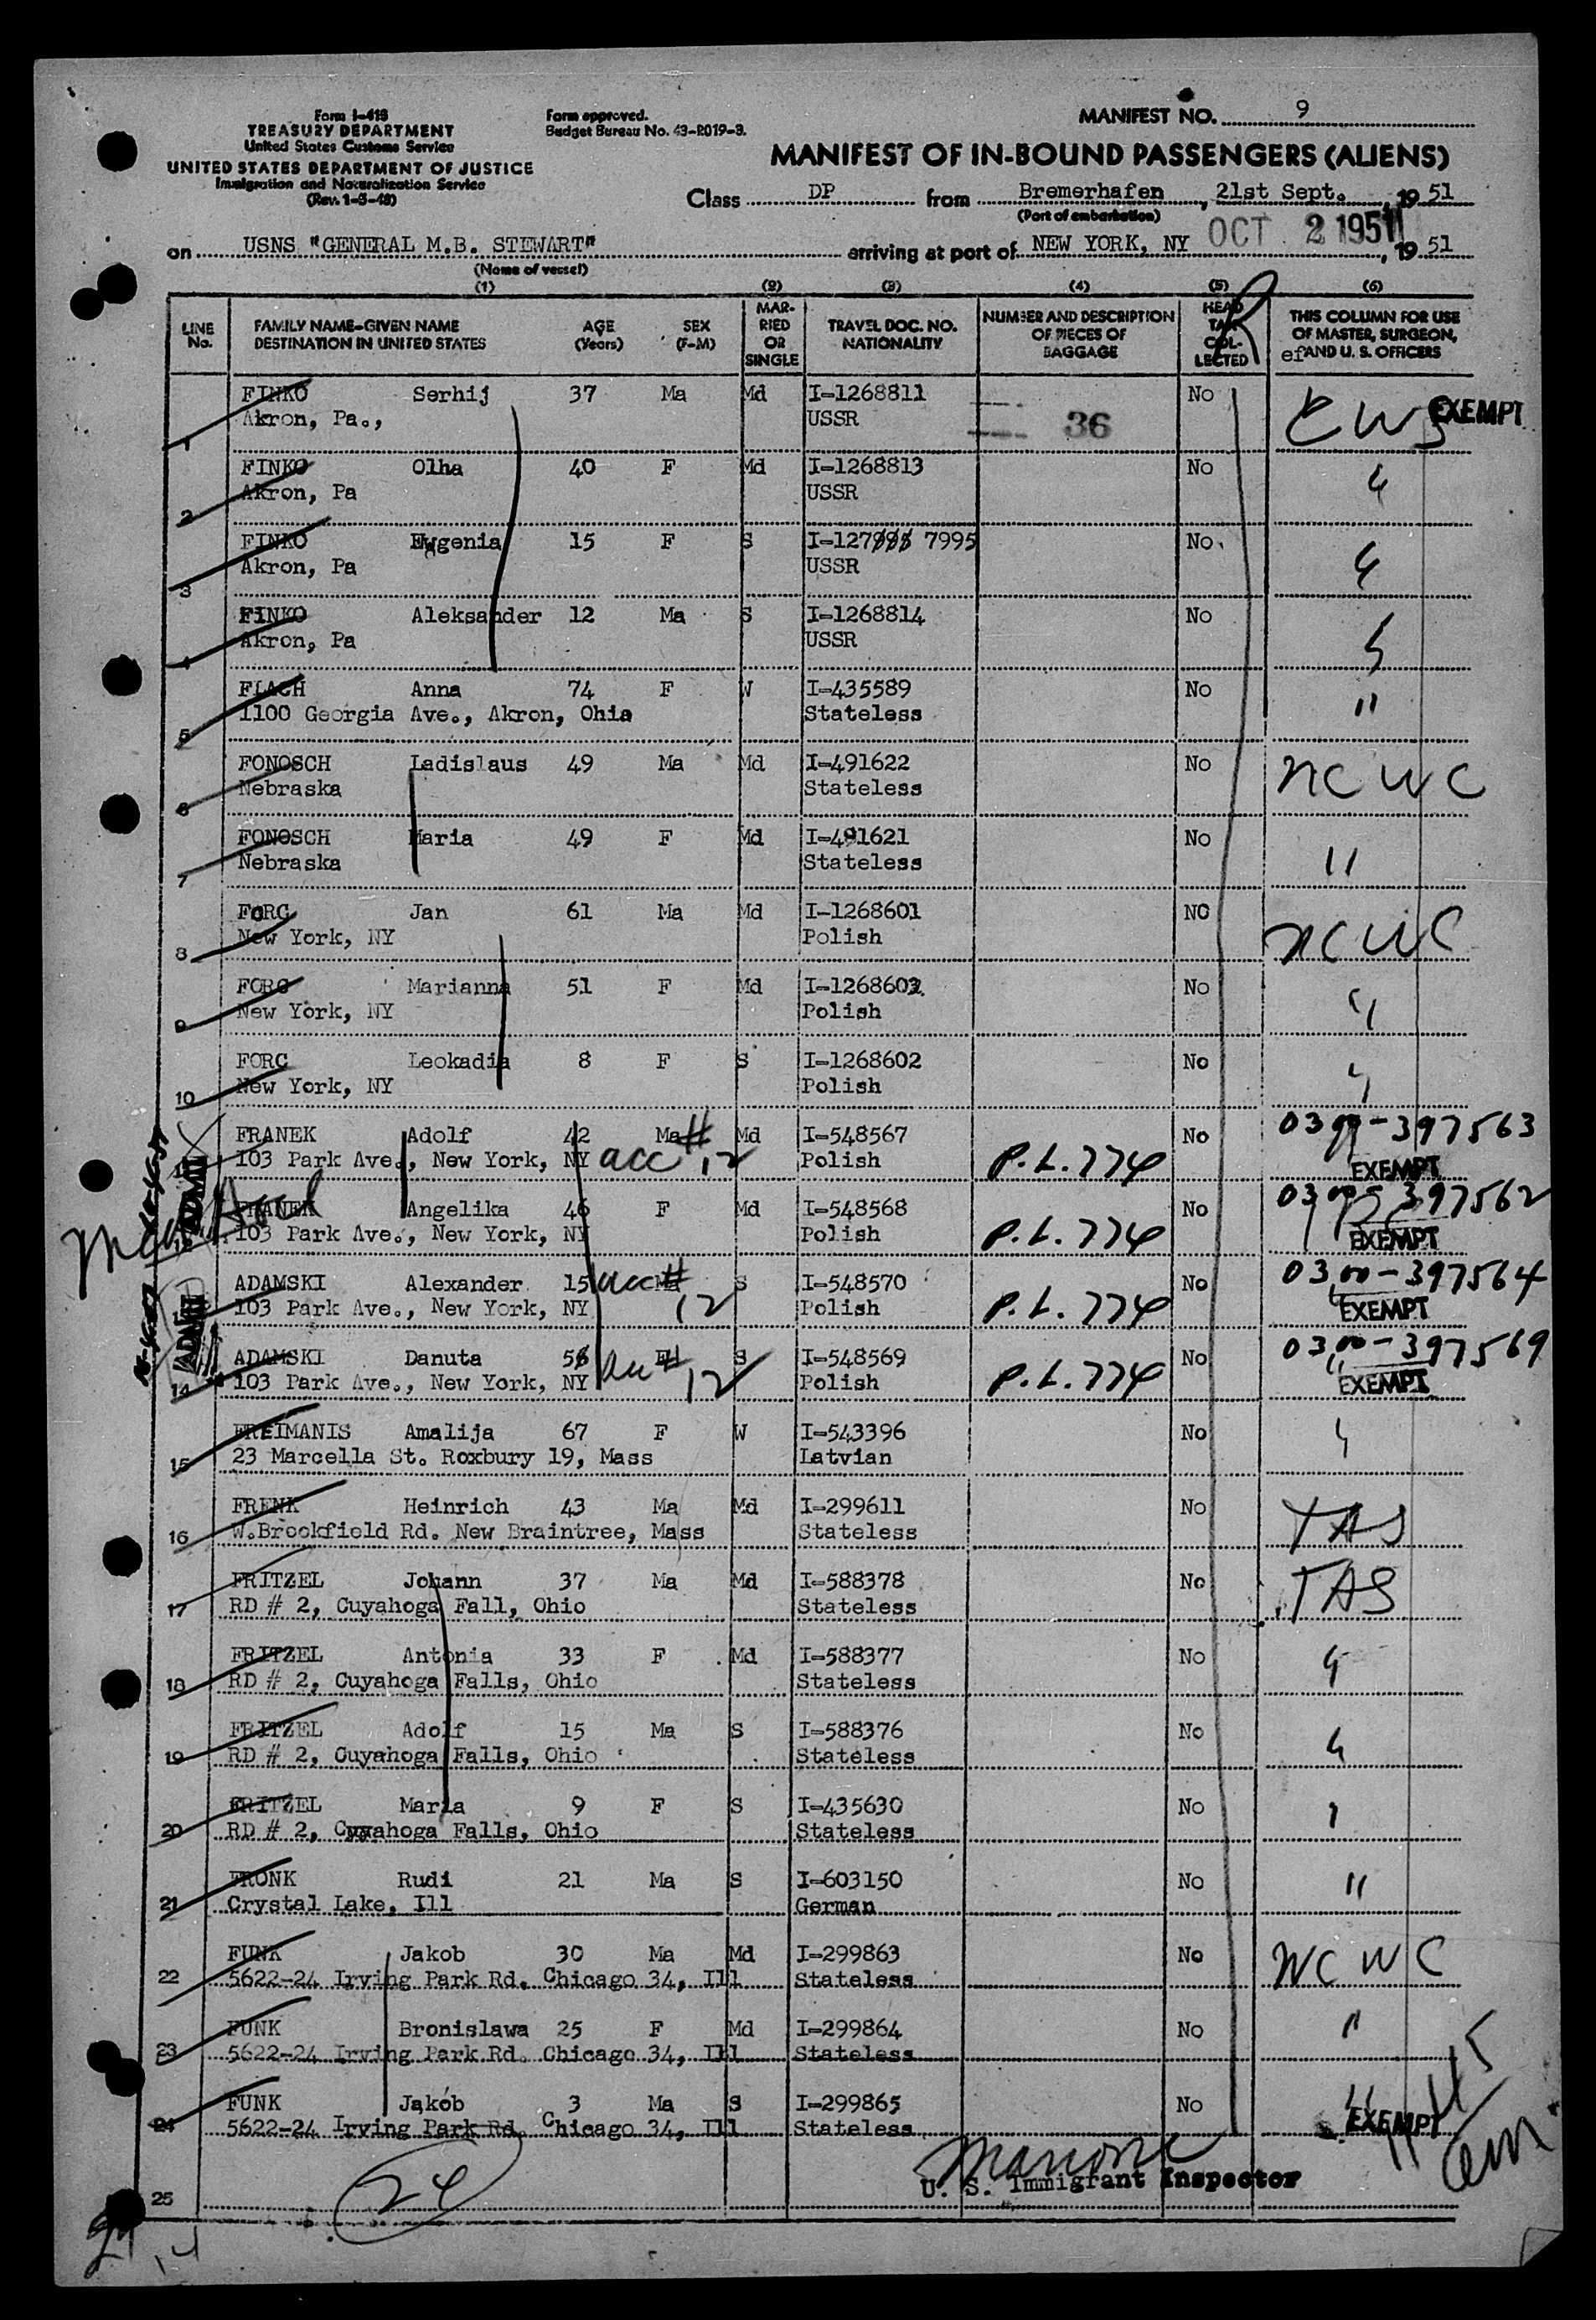 Form I-418
TREASURY DEPARTMENT
United States Customs Service
UNITED STATES DEPARTMENT OF JUSTICE
Immigration and Naturalization Service
(Rev. 1-3-48)
Form approved.
Budget Bureau No. 43-R019-3.
MANIFEST NO. 9
MANIFEST OF IN-BOUND PASSENGERS (ALIENS)
Class DP from Bremerhafen, 21st Sept., 19 51
(Port of embarkation)
on USNS "GENERAL M.B. STEWART" arriving at port of NEW YORK, NY OCT 2 1951, 19 51
(Name of vessel)
(1) (2) (3) (4) (5) (6)
LINE No. FAMILY NAME-GIVEN NAME DESTINATION IN UNITED STATES AGE (Years) SEX (F-M) MARRIED OR SINGLE TRAVEL DOC. NO. NATIONALITY NUMBER AND DESCRIPTION OF PIECES OF BAGGAGE HEAD TAX COLLECTED THIS COLUMN FOR USE OF MASTER, SURGEON, AND U. S. OFFICERS
FINKO Serhij 37 Ma Md I-1268811 No CWS EXEMPT
1 Akron, Pa., USSR 36
FINKO Olha 40 F Md I-1268813 No "
2 Akron, Pa USSR
FINKO Ewgenia 15 F S I-127 7995 No "
3 Akron, Pa USSR
FINKO Aleksander 12 Ma S I-1268814 No "
4 Akron, Pa USSR
FLACH Anna 74 F W I-435589 No "
5 1100 Georgia Ave., Akron, Ohia Stateless
FONOSCH Ladislaus 49 Ma Md I-491622 No NCWC
6 Nebraska Stateless
FONOSCH Maria 49 F Md I-491621 No "
7 Nebraska Stateless
FORC Jan 61 Ma Md I-1268601 NO NCWC
8 New York, NY Polish
FORC Marianna 51 F Md I-1268603 No "
9 New York, NY Polish
FORC Leokadia 8 F S I-1268602 No "
10 New York, NY Polish
FRANEK Adolf 42 Ma Md I-548567 No 0300-397563
103 Park Ave., New York, NY acc # 12 Polish P.L. 774 EXEMPT
FRANEK Angelika 46 F Md I-548568 No 0300-397562
103 Park Ave., New York, NY Polish P.L. 774 EXEMPT
ADAMSKI Alexander 15 acc # S I-548570 No 0300-397564
103 Park Ave., New York, NY 12 Polish P.L. 774 EXEMPT
ADAMSKI Danuta S I-548569 No 0300-397569
14 103 Park Ave., New York, NY 12 Polish P.L. 774 EXEMPT
ADMIT
FREIMANIS Amalija 67 F W I-543396 No "
15 23 Marcella St. Roxbury 19, Mass Latvian
FRENK Heinrich 43 Ma Md I-299611 No TAS
16 W.Brookfield Rd. New Braintree, Mass Stateless
FRITZEL Johann 37 Ma Md I-588378 No TAS
17 RD # 2, Cuyahoga Fall, Ohio Stateless
FRITZEL Antonia 33 F Md I-588377 No "
18 RD # 2, Cuyahoga Falls, Ohio Stateless
FRITZEL Adolf 15 Ma S I-588376 No "
19 RD # 2, Cuyahoga Falls, Ohio Stateless
FRITZEL Maria 9 F S I-435630 No "
20 RD # 2, Cuyahoga Falls, Ohio Stateless
FRONK Rudi 21 Ma S I-603150 No "
21 Crystal Lake, Ill German
FUNK Jakob 30 Ma Md I-299863 No NCWC
22 5622-24 Irving Park Rd. Chicago 34, Ill Stateless
FUNK Bronislawa 25 F Md I-299864 No "
23 5622-24 Irving Park Rd. Chicago 34, Ill Stateless
FUNK Jakob 3 Ma S I-299865 No "
24 5622-24 Irving Park Rd. Chicago 34, Ill Stateless EXEMPT
U. S. Immigrant Inspector
25 24